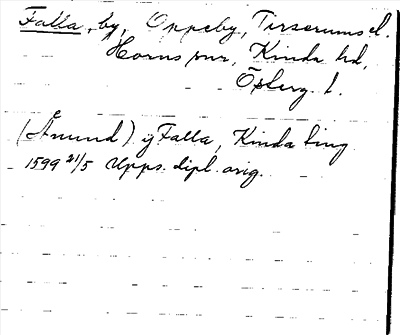 Falla, by, Oppeby, Tirserums sl.
Horns snr, Kinda hd,
Österg. l.
(Åmund) ij Falla, Kinda ting
1599 21/5 Upps. dipl. orig.